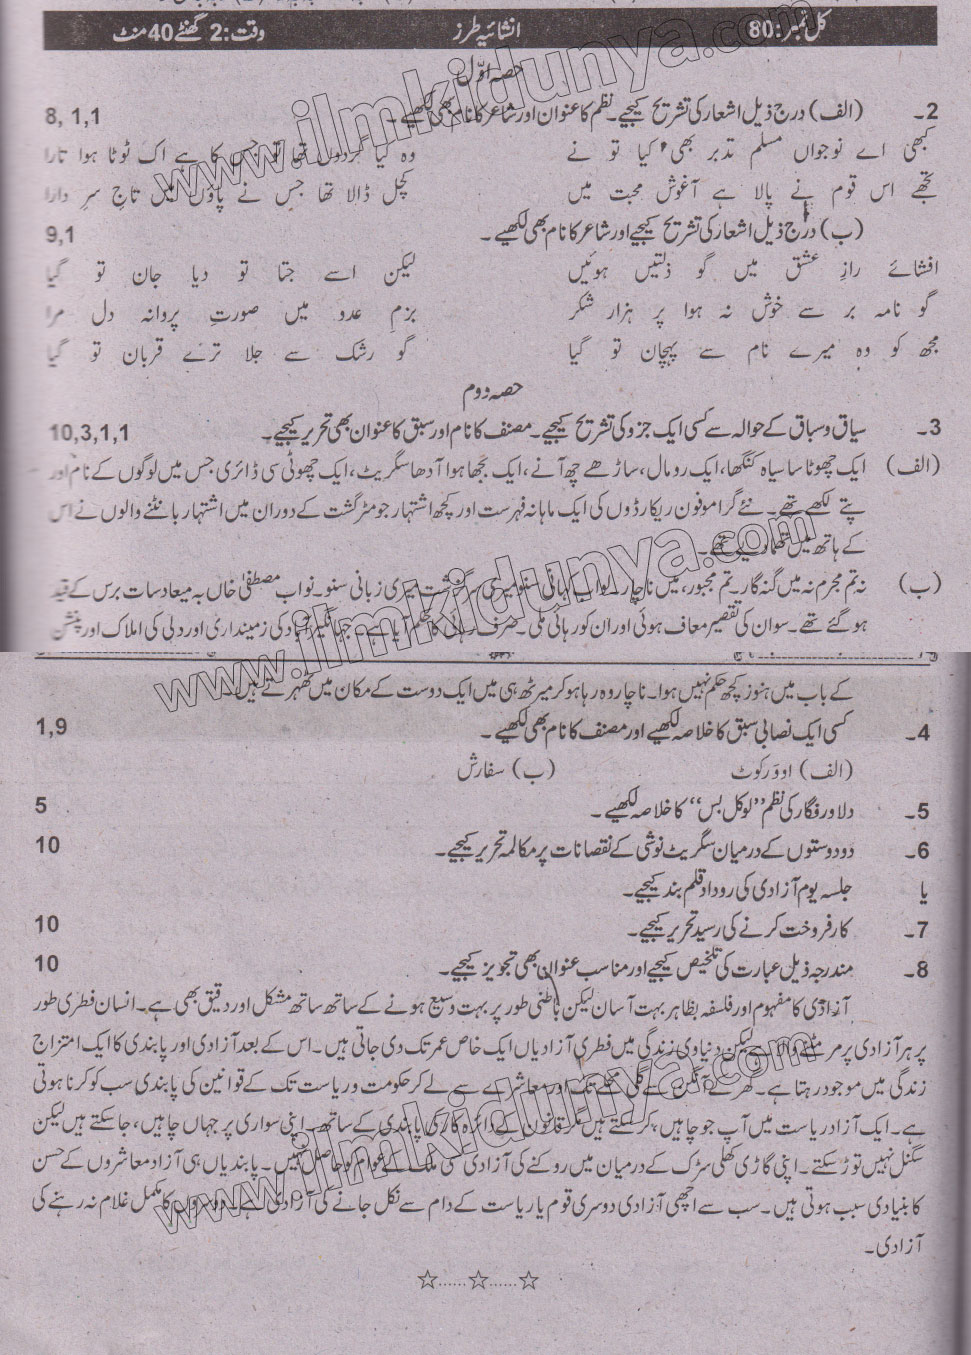 کل نمبر: 80 انشائیہ طرز وقت: 2 گھنٹے 40 منٹ
حصہ اوّل
2۔ (الف) درج ذیل اشعار کی تشریح کیجیے۔ نظم کا عنوان اور شاعر کا نام بھی لکھیے۔ 8, 1,1
کبھی اے نوجواں مسلم تدبر بھی کیا تو نے وہ کیا گردوں تھا تو جس کا ہے اک ٹوٹا ہوا تارا
تجھے اس قوم نے پالا ہے آغوش محبت میں کچل ڈالا تھا جس نے پاؤں میں تاج سرِ دارا
(ب) درج ذیل اشعار کی تشریح کیجیے اور شاعر کا نام بھی لکھیے۔ 9,1
افشائے رازِ عشق میں گو ذلتیں ہوئیں لیکن اسے جتا تو دیا جان تو گیا
گو نامہ بر سے خوش نہ ہوا پر ہزار شکر بزمِ عدو میں صورتِ پروانہ دل مرا
مجھ کو وہ میرے نام سے پہچان تو گیا گو رشک سے جلا ترے قربان تو گیا
حصہ دوم
3۔ سیاق و سباق کے حوالہ سے کسی ایک جزو کی تشریح کیجیے۔ مصنف کا نام اور سبق کا عنوان بھی تحریر کیجیے۔ 10,3,1,1
(الف) ایک چھوٹا سا سیاہ کنگھا، ایک رومال، ساڑھے چھ آنے، ایک بجھا ہوا آدھا سگریٹ، ایک چھوٹی سی ڈائری جس میں لوگوں کے نام اور
پتے لکھے تھے۔ نئے گراموفون ریکارڈوں کی ایک ماہانہ فہرست اور کچھ اشتہار جو مٹرگشت کے دوران میں اشتہار بانٹنے والوں نے اس
کے ہاتھ میں تھما دیے تھے۔
(ب) نہ تم مجرم نہ میں گنہگار۔ تم مجبور، میں ناچار۔ لو اب کہانی سنو میری سرگزشت میری زبانی سنو۔ نواب مصطفیٰ خاں بہ میعاد سات برس کے قید
ہو گئے تھے۔ سو ان کی تقصیر معاف ہوئی اور ان کو رہائی ملی۔ صرف رہائی کا حکم آیا ہے۔ جہانگیر آباد کی زمینداری اور دلی کی املاک اور پنشن
کے باب میں ہنوز کچھ حکم نہیں ہوا۔ ناچار وہ رہا ہو کر میرٹھ ہی میں ایک دوست کے مکان میں ٹھہرتے ہیں۔
4۔ کسی ایک نصابی سبق کا خلاصہ لکھیے اور مصنف کا نام بھی لکھیے۔ 1,9
(الف) اوور کوٹ (ب) سفارش
5۔ دلاور فگار کی نظم "لوکل بس" کا خلاصہ لکھیے۔ 5
6۔ دو دوستوں کے درمیان سگریٹ نوشی کے نقصانات پر مکالمہ تحریر کیجیے۔ 10
یا جلسہ یوم آزادی کی روداد قلم بند کیجیے۔
7۔ کار فروخت کرنے کی رسید تحریر کیجیے۔ 10
8۔ مندرجہ ذیل عبارت کی تلخیص کیجیے اور مناسب عنوان بھی تجویز کیجیے۔ 10
آزادی کا مفہوم اور فلسفہ بظاہر بہت آسان لیکن باطنی طور پر بہت وسیع ہونے کے ساتھ ساتھ مشکل اور دقیق بھی ہے۔ انسان فطری طور
پر ہر آزادی پر مر مٹنے والا ہے لیکن دنیاوی زندگی میں فطری آزادیاں ایک خاص عمر تک دی جاتی ہیں۔ اس کے بعد آزادی اور پابندی کا ایک امتزاج
زندگی میں موجود رہتا ہے۔ گھر کے آنگن سے گلی محلے تک اور معاشرے سے لے کر حکومت و ریاست تک کے قوانین کی پابندی سب کو کرنا ہوتی
ہے۔ ایک آزاد ریاست میں آپ جو چاہیں، کر سکتے ہیں مگر قانون کے دائرہ کار کی پابندی کے ساتھ۔ اپنی سواری پر جہاں چاہیں، جا سکتے ہیں لیکن
سگنل نہیں توڑ سکتے۔ اپنی گاڑی کھلی سڑک کے درمیان میں روکنے کی آزادی کسی ملک کے عوام کو حاصل نہیں۔ پابندیاں ہی آزاد معاشروں کے حسن
کا بنیادی سبب ہوتی ہیں۔ سب سے اچھی آزادی دوسری قوم یا ریاست کے دام سے نکل جانے کی آزادی ہے۔ دوسروں کا مکمل غلام نہ رہنے کی
آزادی۔
www.ilmkidunya.com
www.ilmkidunya.com
www.ilmkidunya.com